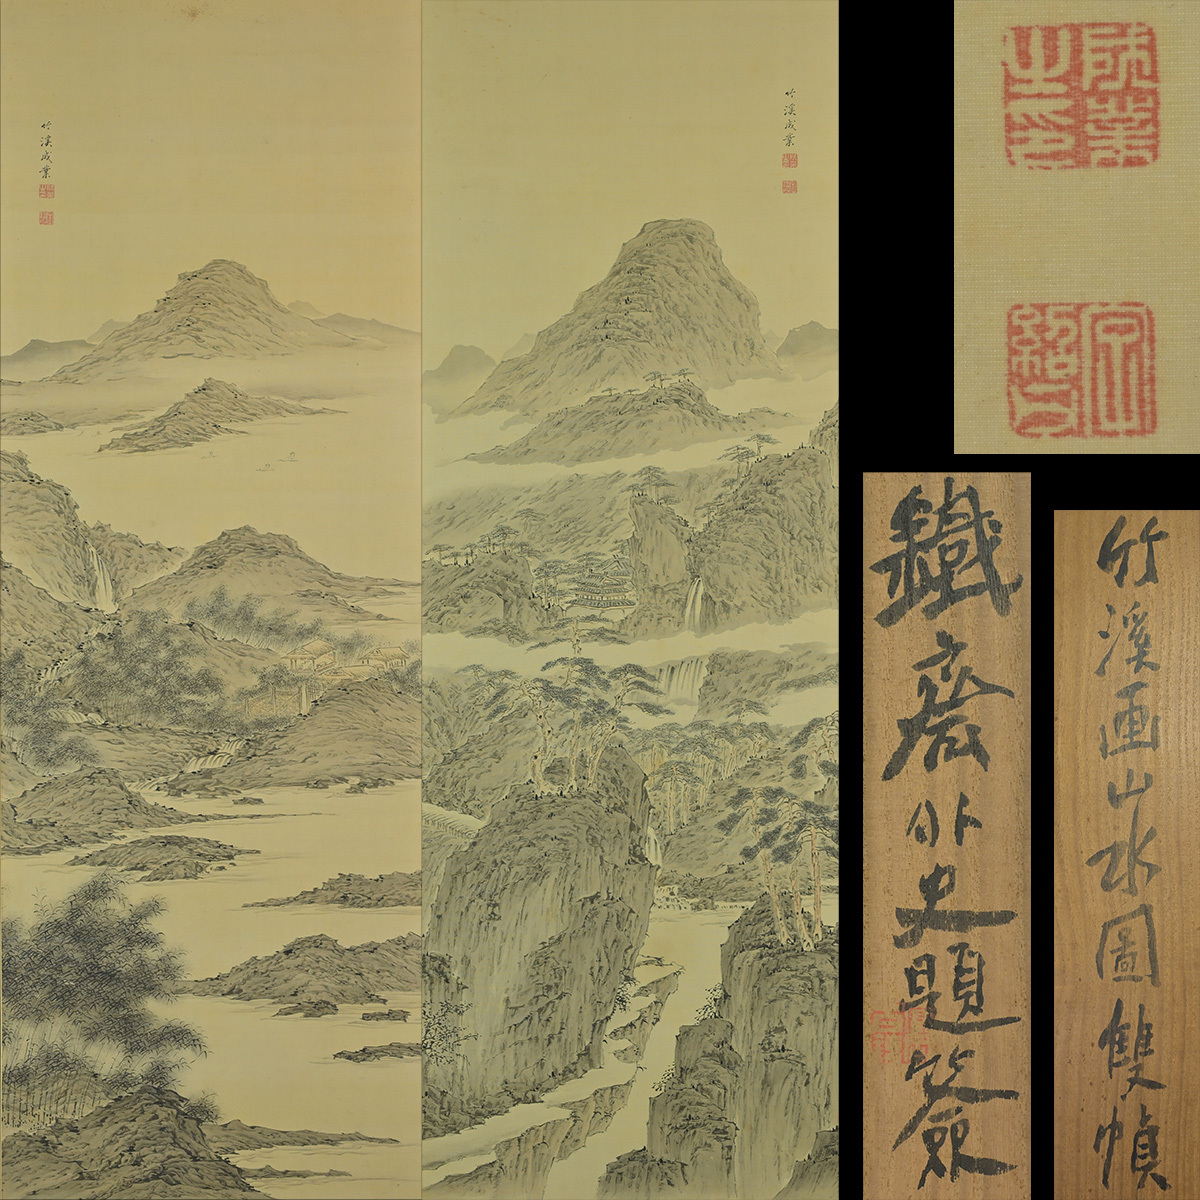 竹溪成業
竹溪成業
成業之印
鐵齋外史題簽
竹溪画山水圖雙幀